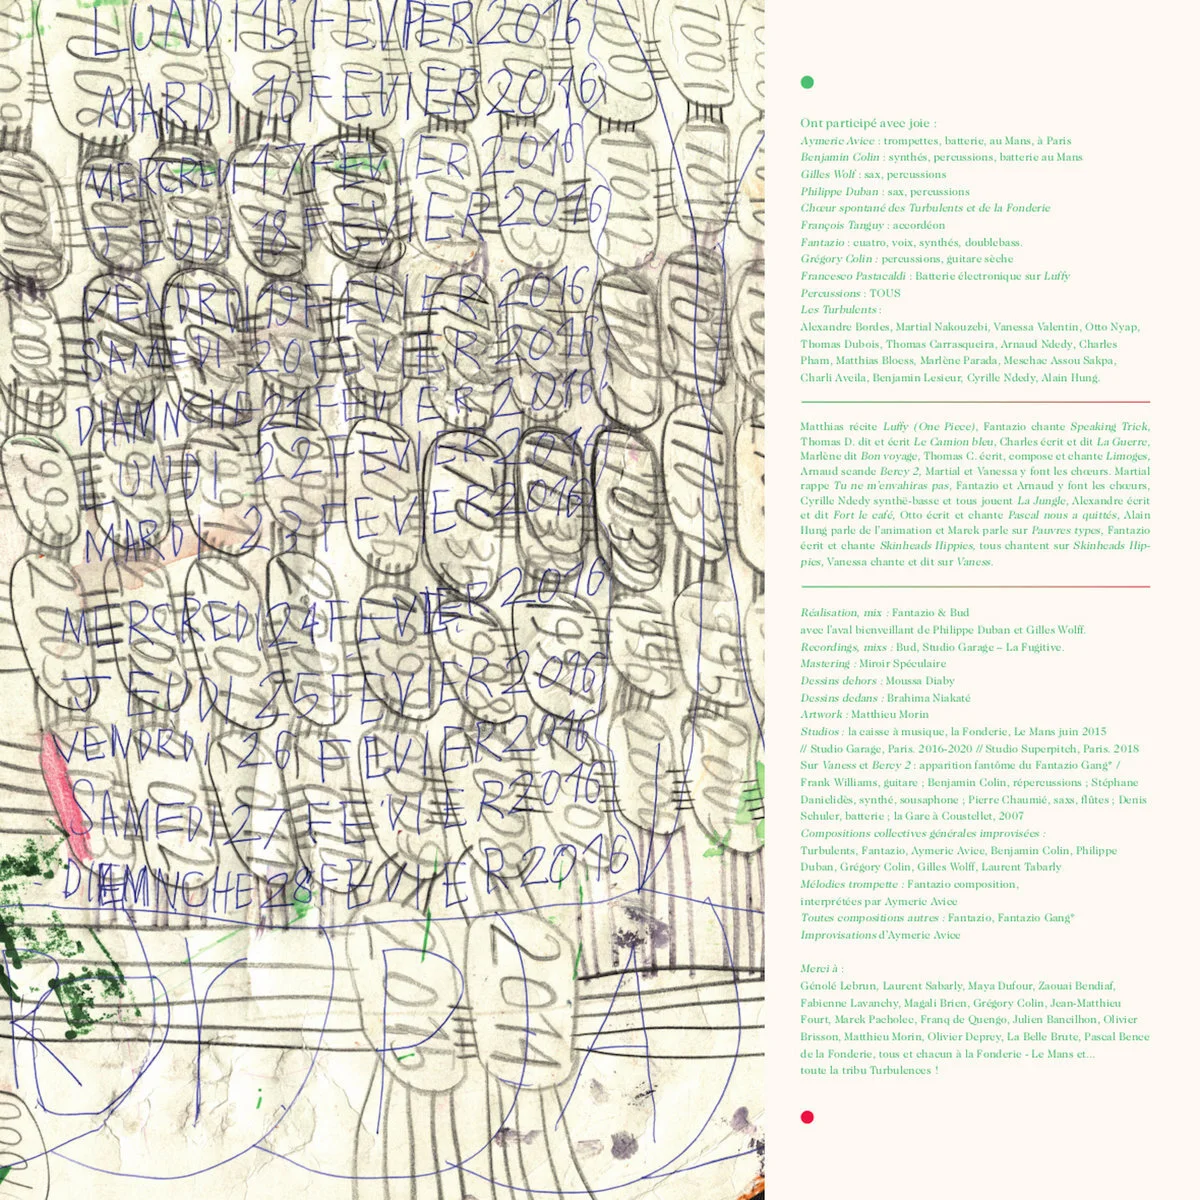 LUNDI 15 FEVIER 2016
MARDI 16 FEVIER 2016
MERCREDI 17 FEVIER 2016
JEUDI 18 FEVIER 2016
VENDRDI 19 FEVIER 2016
SAMEDI 20 FEVIER 2016
DIAMNCHE 21 FEVIER 2016
LUNDI 22 FEVIER 2016
MARDI 23 FEVIER 2016
MERCREDI 24 FEVIER 2016
JEUDI 25 FEVIER 2016
VENDRDI 26 FEVIER 2016
SAMEDI 27 FEVIER 2016
DIEMNCHE 28 FEVIER 2016
2014
Ont participé avec joie :
Aymeric Avice : trompettes, batterie, au Mans, à Paris
Benjamin Colin : synthés, percussions, batterie au Mans
Gilles Wolf : sax, percussions
Philippe Duban : sax, percussions
Chœur spontané des Turbulents et de la Fonderie
François Tanguy : accordéon
Fantazio : cuatro, voix, synthés, doublebass.
Grégory Colin : percussions, guitare sèche
Francesco Pastacaldi : Batterie électronique sur Luffy
Percussions : TOUS
Les Turbulents :
Alexandre Bordes, Martial Nakouzebi, Vanessa Valentin, Otto Nyap,
Thomas Dubois, Thomas Carrasqueira, Arnaud Ndedy, Charles
Pham, Matthias Bloess, Marlène Parada, Meschac Assou Sakpa,
Charli Aveila, Benjamin Lesieur, Cyrille Ndedy, Alain Hung.
Matthias récite Luffy (One Piece), Fantazio chante Speaking Trick,
Thomas D. dit et écrit Le Camion bleu, Charles écrit et dit La Guerre,
Marlène dit Bon voyage, Thomas C. écrit, compose et chante Limoges,
Arnaud scande Bercy 2, Martial et Vanessa y font les chœurs. Martial
rappe Tu ne m'envahiras pas, Fantazio et Arnaud y font les chœurs,
Cyrille Ndedy synthé-basse et tous jouent La Jungle, Alexandre écrit
et dit Fort le café, Otto écrit et chante Pascal nous a quittés, Alain
Hung parle de l'animation et Marek parle sur Pauvres types, Fantazio
écrit et chante Skinheads Hippies, tous chantent sur Skinheads Hip-
pies, Vanessa chante et dit sur Vaness.
Réalisation, mix : Fantazio & Bud
avec l'aval bienveillant de Philippe Duban et Gilles Wolff.
Recordings, mixs : Bud, Studio Garage – La Fugitive.
Mastering : Miroir Spéculaire
Dessins dehors : Moussa Diaby
Dessins dedans : Brahima Niakaté
Artwork : Matthieu Morin
Studios : la caisse à musique, la Fonderie, Le Mans juin 2015
// Studio Garage, Paris. 2016-2020 // Studio Superpitch, Paris. 2018
Sur Vaness et Bercy 2 : apparition fantôme du Fantazio Gang* /
Frank Williams, guitare ; Benjamin Colin, répercussions ; Stéphane
Danielidès, synthé, sousaphone ; Pierre Chaumié, saxs, flûtes ; Denis
Schuler, batterie ; la Gare à Coustellet, 2007
Compositions collectives générales improvisées :
Turbulents, Fantazio, Aymeric Avice, Benjamin Colin, Philippe
Duban, Grégory Colin, Gilles Wolff, Laurent Tabarly
Mélodies trompette : Fantazio composition,
interprétées par Aymeric Avice
Toutes compositions autres : Fantazio, Fantazio Gang*
Improvisations d'Aymeric Avice
Merci à :
Génolé Lebrun, Laurent Sabarly, Maya Dufour, Zaouai Bendiaf,
Fabienne Lavanchy, Magali Brien, Grégory Colin, Jean-Matthieu
Fourt, Marek Pacholec, Franq de Quengo, Julien Bancilhon, Olivier
Brisson, Matthieu Morin, Olivier Deprey, La Belle Brute, Pascal Bence
de la Fonderie, tous et chacun à la Fonderie - Le Mans et...
toute la tribu Turbulences !